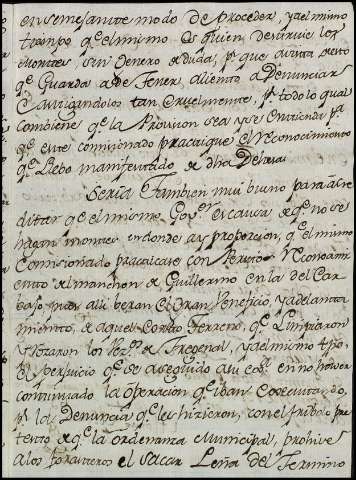 en semejante modo de Proceder, y al mismo
tiempo q.e el mismo es quien destruie los
Montes sin Genero de duda, p.r que a vista de esto
q.e Guarda a de Tener aliento a Denunciar
Castigandolos tan Cruelmente, p.r todo lo qual
Combiene q.e la Provision sea y se entienda p.a
q.e este comisionado practique el reconocimiento
q.e llebo manifestado de dha Dehesa
Seria Tambien mui bueno para acre
ditar que el mismo Gov.or es causa de q.e no se
hagan montes en donde ay proporcion, q.e el mismo
Comisionado practicase con Peritos reconocimi
ento del manchon de Guillermo en la del Car
bajo, pues alli beran el Gran beneficio, y adelanta
miento, de aquel Corto Terreno, q.e Limpiaron
y rozaron los Vez.os de Fregenal, y al mismo tpo,
el perjuicio q.e se a seguido asi este en no haver
continuado la operacion q.e iban executando,
p.r la Denuncia q.e les hizieron, con el fribolo pre
texto de q.e la ordenanza Municipal, prohive
a los forasteros el sacar Leña del Termino